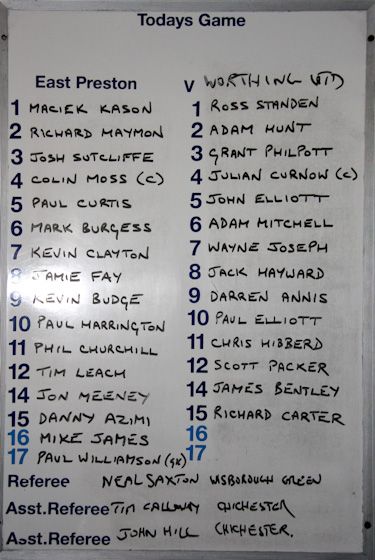 Todays Game
East Preston v WORTHING UTD
1 MACIEK KASON 1 ROSS STANDEN
2 RICHARD MAYMON 2 ADAM HUNT
3 JOSH SUTCLIFFE 3 GRANT PHILPOTT
4 COLIN MOSS (C) 4 JULIAN CURNOW (C)
5 PAUL CURTIS 5 JOHN ELLIOTT
6 MARK BURGESS 6 ADAM MITCHELL
7 KEVIN CLAYTON 7 WAYNE JOSEPH
8 JAMIE FAY 8 JACK HAYWARD
9 KEVIN BUDGE 9 DARREN ANNIS
10 PAUL HARRINGTON 10 PAUL ELLIOTT
11 PHIL CHURCHILL 11 CHRIS HIBBERD
12 TIM LEACH 12 SCOTT PACKER
14 JON MEENEY 14 JAMES BENTLEY
15 DANNY AZIMI 15 RICHARD CARTER
16 MIKE JAMES 16
17 PAUL WILLIAMSON (GK) 17
Referee NEAL SAXTON WISBOROUGH GREEN
Asst.Referee TIM CALLOWAY CHICHESTER
Asst.Referee JOHN HILL CHICHESTER.